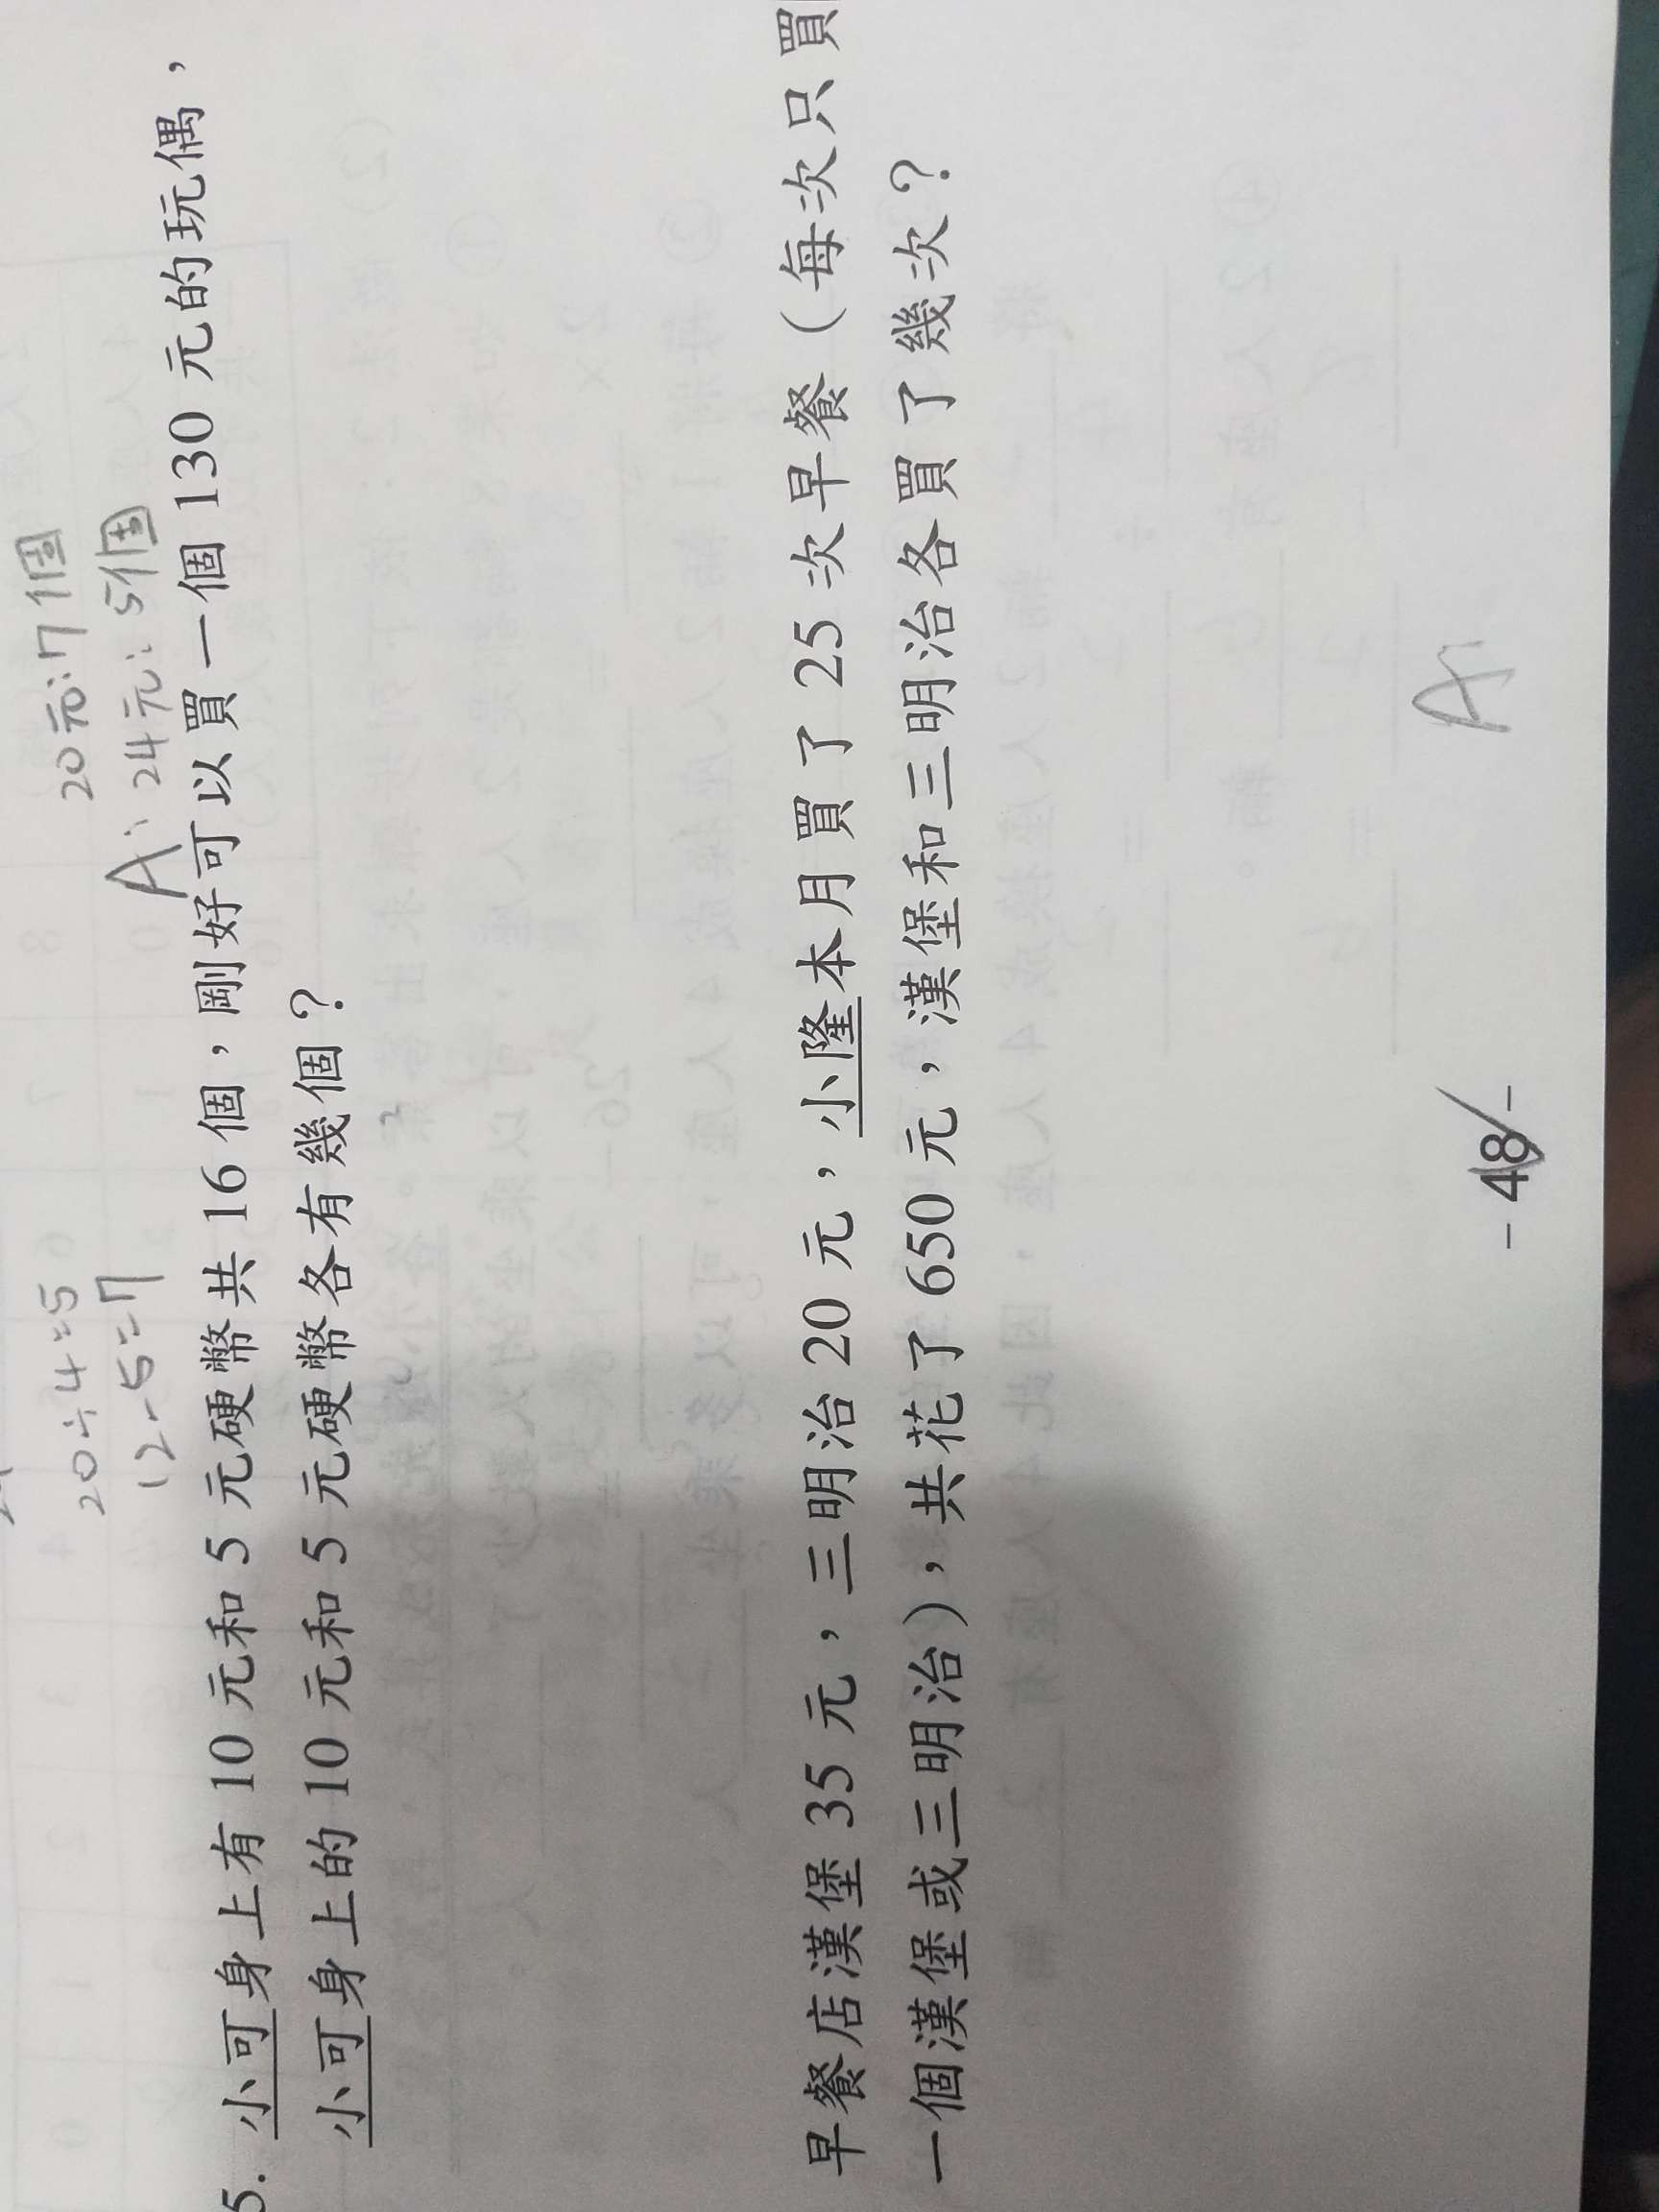 20÷4=5
12-5=7
20元:7個
A: 24元:5個
5. 小可身上有 10 元和 5 元硬幣共 16 個，剛好可以買一個 130 元的玩偶，
小可身上的 10 元和 5 元硬幣各有幾個？
早餐店漢堡 35 元，三明治 20 元，小隆本月買了 25 次早餐（每次只買
一個漢堡或三明治），共花了 650 元，漢堡和三明治各買了幾次？
A
- 48 -